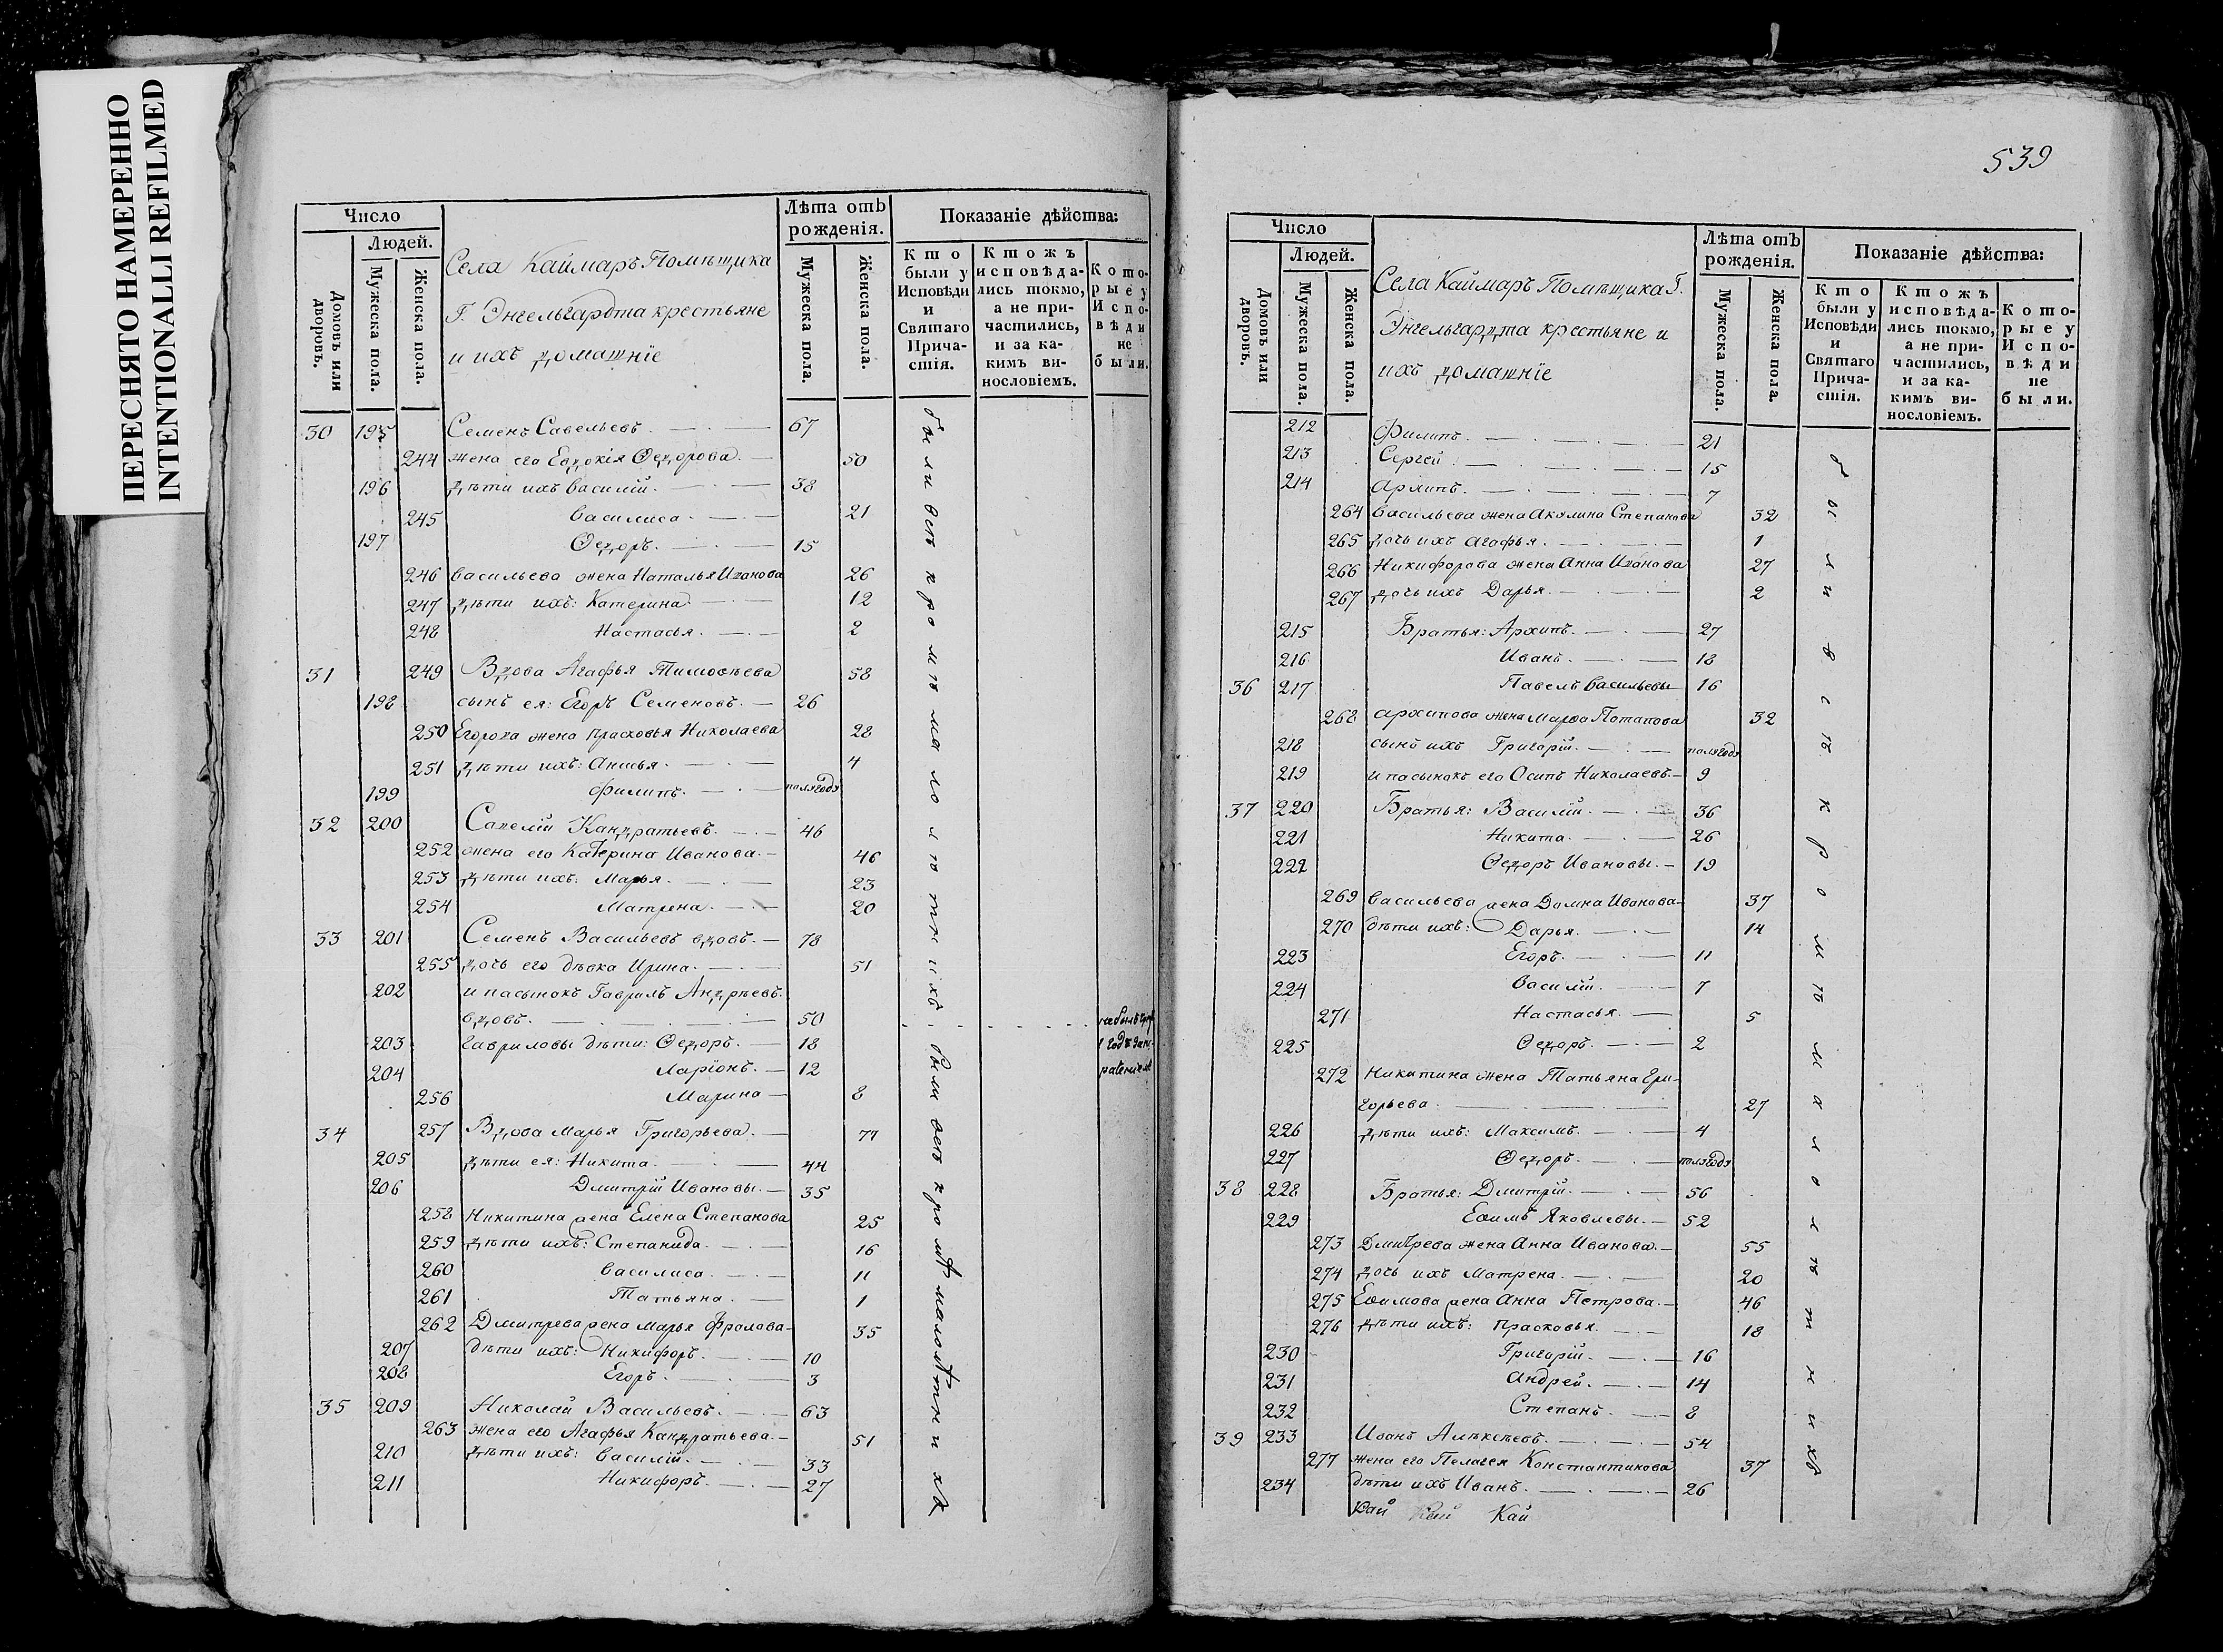 ПЕРЕСНЯТО НАМЕРЕННО
INTENTIONALLI REFILMED
Число
Людей.
Домовъ или дворовъ.
Мужеска пола.
Женска пола.
Села Каймаръ Помѣщика
Г. Энгельгардта крестьяне
и ихъ домашніе
Лѣта отъ рожденія.
Мужеска пола.
Женска пола.
Показаніе дѣйства:
Кто были у Исповѣди и Святаго Причастія.
Ктожъ исповѣдались токмо, а не причастились, и за какимъ винословіемъ.
Которые у Исповѣди не были.
30 195 Семенъ Савельевъ. 67
244 жена его Евдокія Ѳедорова. 50
196 дѣти ихъ Василій. 38
245 Василиса. 21
197 Ѳедоръ. 15
246 Васильева жена Наталья Иванова 26
247 дѣти ихъ: Катерина 12
248 Настасья. 2
31 249 Вдова Агафья Тимоѳѣева 58
198 сынъ ея: Егоръ Семеновъ. 26
250 Егорова жена Прасковья Николаева 28
251 дѣти ихъ: Анисья. 4
199 Филипъ. полъгода
32 200 Савелій Кандратьевъ. 46
252 жена его Катерина Иванова. 46
253 дѣти ихъ: Марья. 23
254 Матрена. 20
33 201 Семенъ Васильевъ вдовъ. 78
255 дочь его дѣвка Ирина. 51
202 и пасынокъ Гаврилъ Андрѣевъ
вдовъ. 50
203 Гавриловы дѣти: Ѳедоръ. 18
204 Ларіонъ. 12
256 Марина 8
34 257 Вдова Марья Григорьева. 77
205 дѣти ея: Никита. 44
206 Дмитрій Ивановы. 35
258 Никитина жена Елена Степанова 25
259 дѣти ихъ: Степанида 16
260 Василиса. 11
261 Татьяна. 1
262 Дмитрева жена Марья Фролова 35
207 дѣти ихъ: Никифоръ. 10
208 Егоръ. 3
35 209 Николай Васильевъ. 63
263 жена его Агафья Кандратьева. 51
210 дѣти ихъ: Василій. 33
211 Никифоръ. 27
были всѣ кромѣ малолѣтнихъ. были всѣ кромѣ малолѣтнихъ
539
Число
Людей.
Домовъ или дворовъ.
Мужеска пола.
Женска пола.
Села Каймаръ Помѣщика Г.
Энгельгардта крестьяне и
ихъ домашніе
Лѣта отъ рожденія.
Мужеска пола.
Женска пола.
Показаніе дѣйства:
Кто были у Исповѣди и Святаго Причастія.
Ктожъ исповѣдались токмо, а не причастились, и за какимъ винословіемъ.
Которые у Исповѣди не были.
212 Филипъ. 21
213 Сергей. 15
214 Архипъ. 7
264 Васильева жена Акулина Степанова 32
265 дочь ихъ Агафья. 1
266 Никифорова жена Анна Иванова 27
267 дочь ихъ Дарья. 2
215 Братья: Архипъ. 27
216 Иванъ. 18
36 217 Павелъ Васильевы 16
268 Архипова жена Марѳа Потапова 32
218 сынъ ихъ Григорій. полъгода
219 и пасынокъ его Осипъ Николаевъ. 9
37 220 Братья: Василій. 36
221 Никита. 26
222 Ѳедоръ Ивановы. 19
269 Васильева жена Домна Иванова 37
270 дѣти ихъ: Дарья. 14
223 Егоръ. 11
224 Василій. 7
271 Настасья. 5
225 Ѳедоръ. 2
272 Никитина жена Татьяна Гри-
горьева. 27
226 дѣти ихъ: Максимъ. 4
227 Ѳедоръ. полъгода
38 228 Братья: Дмитрій. 56
229 Еѳимъ Яковлевы. 52
273 Дмитрева жена Анна Иванова. 55
274 дочь ихъ Матрена. 20
275 Еѳимова жена Анна Петрова. 46
276 дѣти ихъ: Прасковья. 18
230 Григорій. 16
231 Андрей. 14
232 Степанъ. 8
39 233 Иванъ Алѣксѣевъ. 54
277 жена его Пелагея Константинова 37
234 дѣти ихъ Иванъ. 26
Кай Кай Кай
были всѣ кромѣ малолѣтнихъ